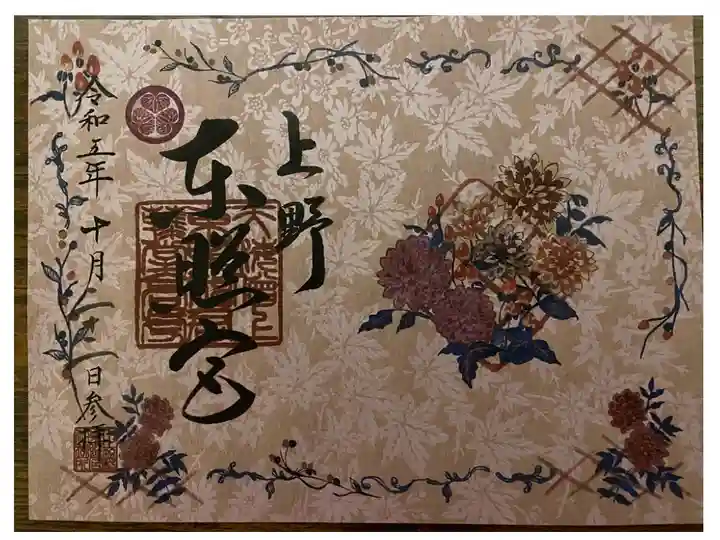 上野
東照宮
令和五年十月二十一日参拝